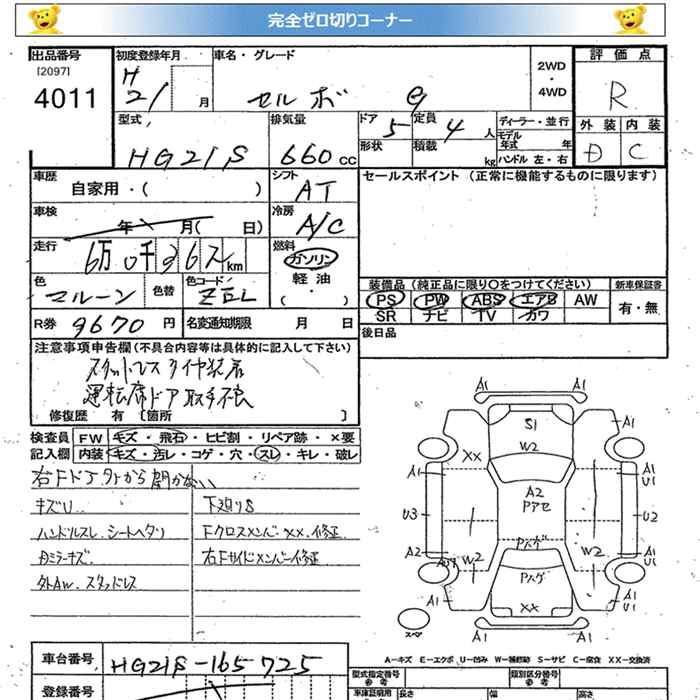 完全ゼロ切りコーナー
出品番号 初度登録年月 車名・グレード 2WD 評価点
[2097] H ・ R
4011 21 月 セルボ G 4WD
型式 排気量 ドア 5 定員 4 人 ディーラー・並行 外装 内装
HG21S 660 CC 形状 積載 kg モデル年式 年 D C
ハンドル 左・右
車歴 シフト セールスポイント (正常に機能するものに限ります)
自家用・( ) AT
車検 冷房
年 月( 日) A/C
走行 燃料
6万 0千 km ガソリン
軽油
・( )
色 色替 色コード 装備品 (純正品に限り○をつけてください) 新車保証書
マルーン ZEL PS PW ABS エアB AW 有・無
SR ナビ TV カワ
R券 9670 円 名変通知期限 月 日 後日品
注意事項申告欄 (不具合内容等は具体的に記入して下さい)
スタットレスタイヤ装着
運転席ドア取手不良
修復歴 有 [箇所 ]
検査員 FW キズ・飛石・ヒビ割・リペア跡・×要
記入欄 内装 キズ・汚レ・コゲ・穴・スレ・キレ・破レ
右Fドア外から開かない
キズU 下廻りS
ハンドルスレ、シートヘタリ Fクロスメンバー××.修正
内ミラーキズ 右Fサイドメンバー修正
外AW.スタッドレス
A1 A1
A1 S1 A1
W2
XX
A1 A2 A1
PアセU1
U3 U2
Pハゲ
A2 W2 W2 A1
Pハゲ U1
XX
A1 A1
U1
スペア A1 A1
A-キズ E-エクボ U-凹み W-補修跡 S-サビ C-腐食 XX-交換済
車台番号 HG21S-165725
登録番号
型式指定番号 参考 類別区分番号 参考
車庫証明用 長さ 幅 高さ